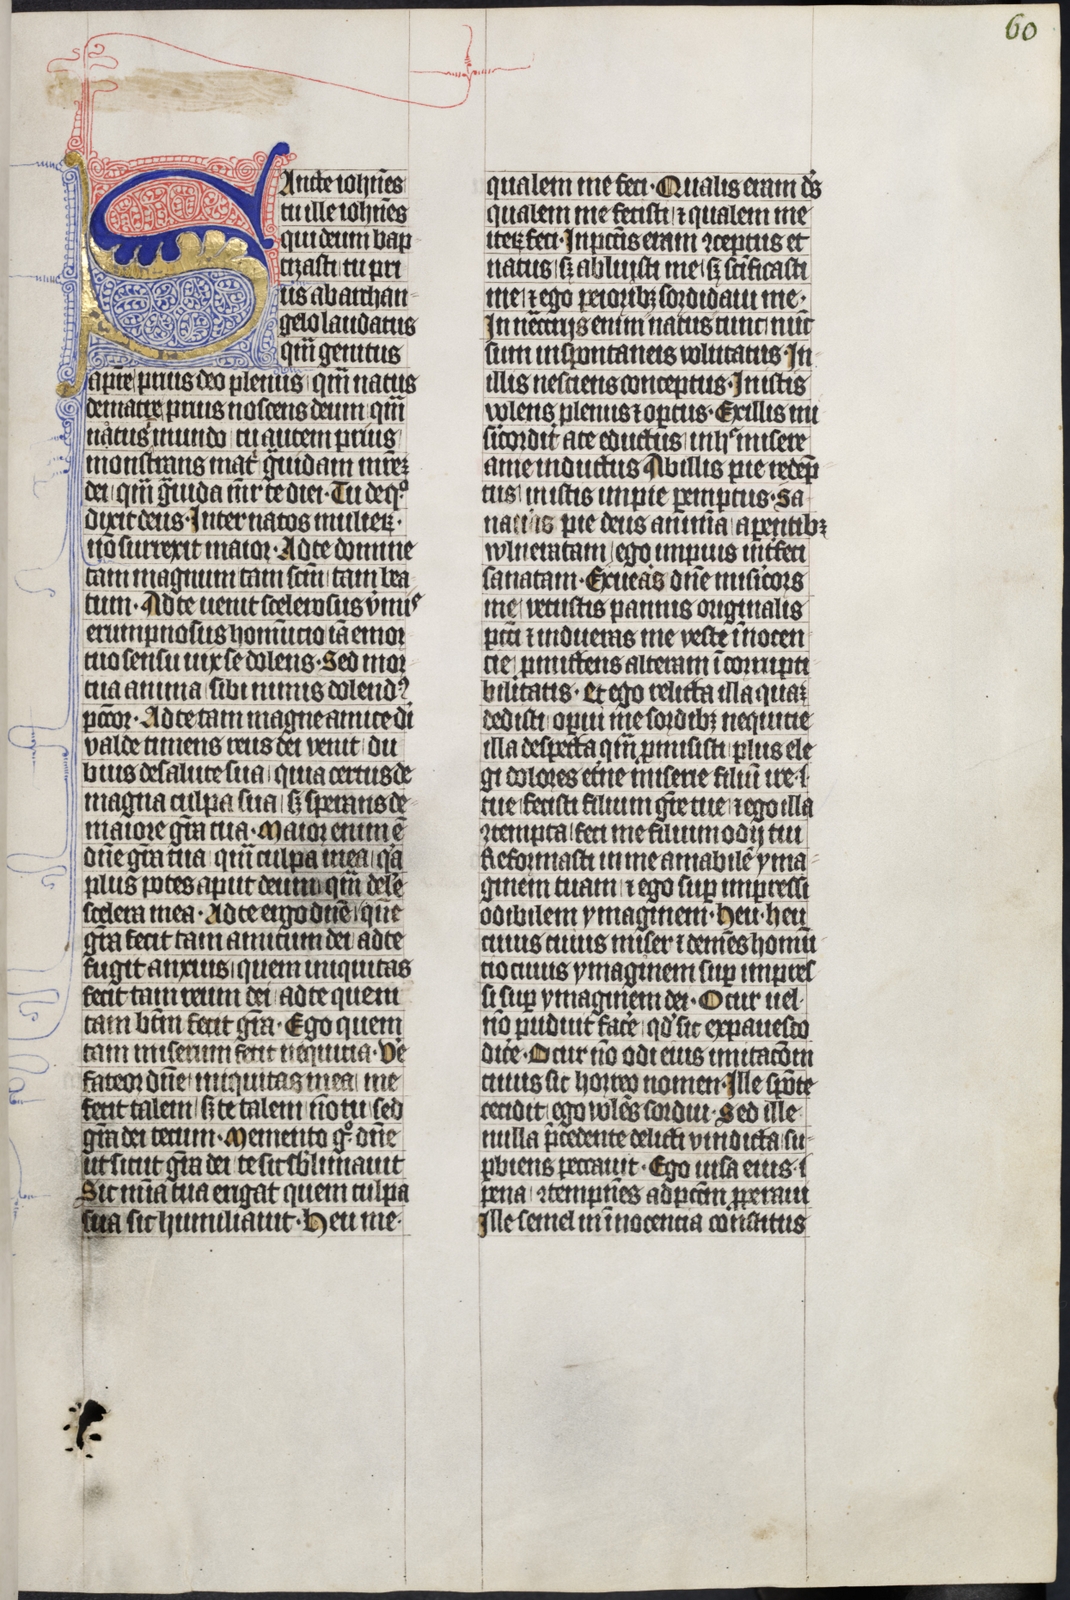 60
Sancte ioh̄nes
tu ille ioh̄nes
qui deum bap
tizasti tu pri
us ab archan
gelo laudatus
qm̄ genitus
a patre prius deo plenus qm̄ natus
de matre prius noscens deum qm̄
natus mundo tu autem prius
monstrans mat̄ g̃uidam mr̄eꝫ
dei qm̄ g̃uida mr̄ te diei· Tu de qͦ
dixit deus· Inter natos mulieꝝ·
nō surrexit maior· Ad te domine
tam magnum tam scm̄ tam bea
tum· Ad te uenit scelerosus vmis
erumpnosus homūcio iā emor
tuo sensu uix se dolens· Sed mor
tua anima sibi nimis dolendꝰ
pctōr· Ad te tam magne amice di
valde timens reus dei venit du
bius de salute sua quia certus de
magna culpa sua sꝫ sperans de
maiore gr̄a tua· Maior enim ē
dn̄e gr̄a tua qm̄ culpa mea qa
plus potes aput deum qm̄ dele
scelera mea· Ad te ergo dn̄e quē
gr̄a fecit tam amicum dei ad te
fugit anxius quem iniquitas
fecit tam reum dei ad te quem
tam btm̄ fecit gr̄a· Ego quem
tam miserum fecit nequicia· Ve
fateor dn̄e iniquitas mea me
fecit talem sꝫ te talem nō tu sed
gr̄a dei tecum· Memento gͦ dn̄e
ut sicut gr̄a dei te sic sb̄limauit
Sic mīa tua erigat quem culpa
sua sic humiliauit· Heu me·
qualem me feci· Qualis eram ds̄
qualem me fecisti ⁊ qualem me
iteꝝ feci· In pctīs eram ꝯceptus et
natus sꝫ abluisti me sꝫ sc̄ificasti
me ⁊ ego peioribꝫ sordidaui me·
In necc̄ijs enim natus tunc nūc
sum in spontaneis volutatus· In
illis nesciens conceptus· In istis
volens plenus ⁊ optus· Ex illis mi
sicordit̄ a te eductus in hiis misere
a me inductus Ab illis pie redēp
tus in istis impie peremptus· Sa
natus pie deus anima a parentibꝫ
vlneratam ego impius int̄feci
sanatam· Exueras dn̄e misicors
me vetustis pannis originalis
pcti ⁊ indueras me veste īnocen
cie pmittens alteram īcorrupti
bilitatis· Et ego relicta illa quaꝫ
dedisti operui me sordibꝫ nequicie
illa despecta qm̄ pmisisti plus ele
gi dolores et̄ne miserie filiū ire·
tue fecisti filium gr̄e tue ⁊ ego illa
ꝯtempta feci me filium odij tui
Reformasti in me amabilē yma
ginem tuam ⁊ ego sup̄ impressi
odibilem ymaginem· Heu heu
cuius cuius miser ⁊ demēs homū
cio cuius ymaginem sup̄ impres
si sup̄ ymaginem dei· O cur uel·
nō puduit face qd̄ sic expauesco
dice· O cur nō odi eius imitacōm
cuius sic horreo nomen· Ille spōte
cecidit ego volēs sordui· Sed ille
nulla p̄cedente delicti vindicta su
pbiens peccauit· Ego uisa eius·
pena ꝯtempnēs ad pctm̄ pperaui
Ille semel in īnocencia constitus